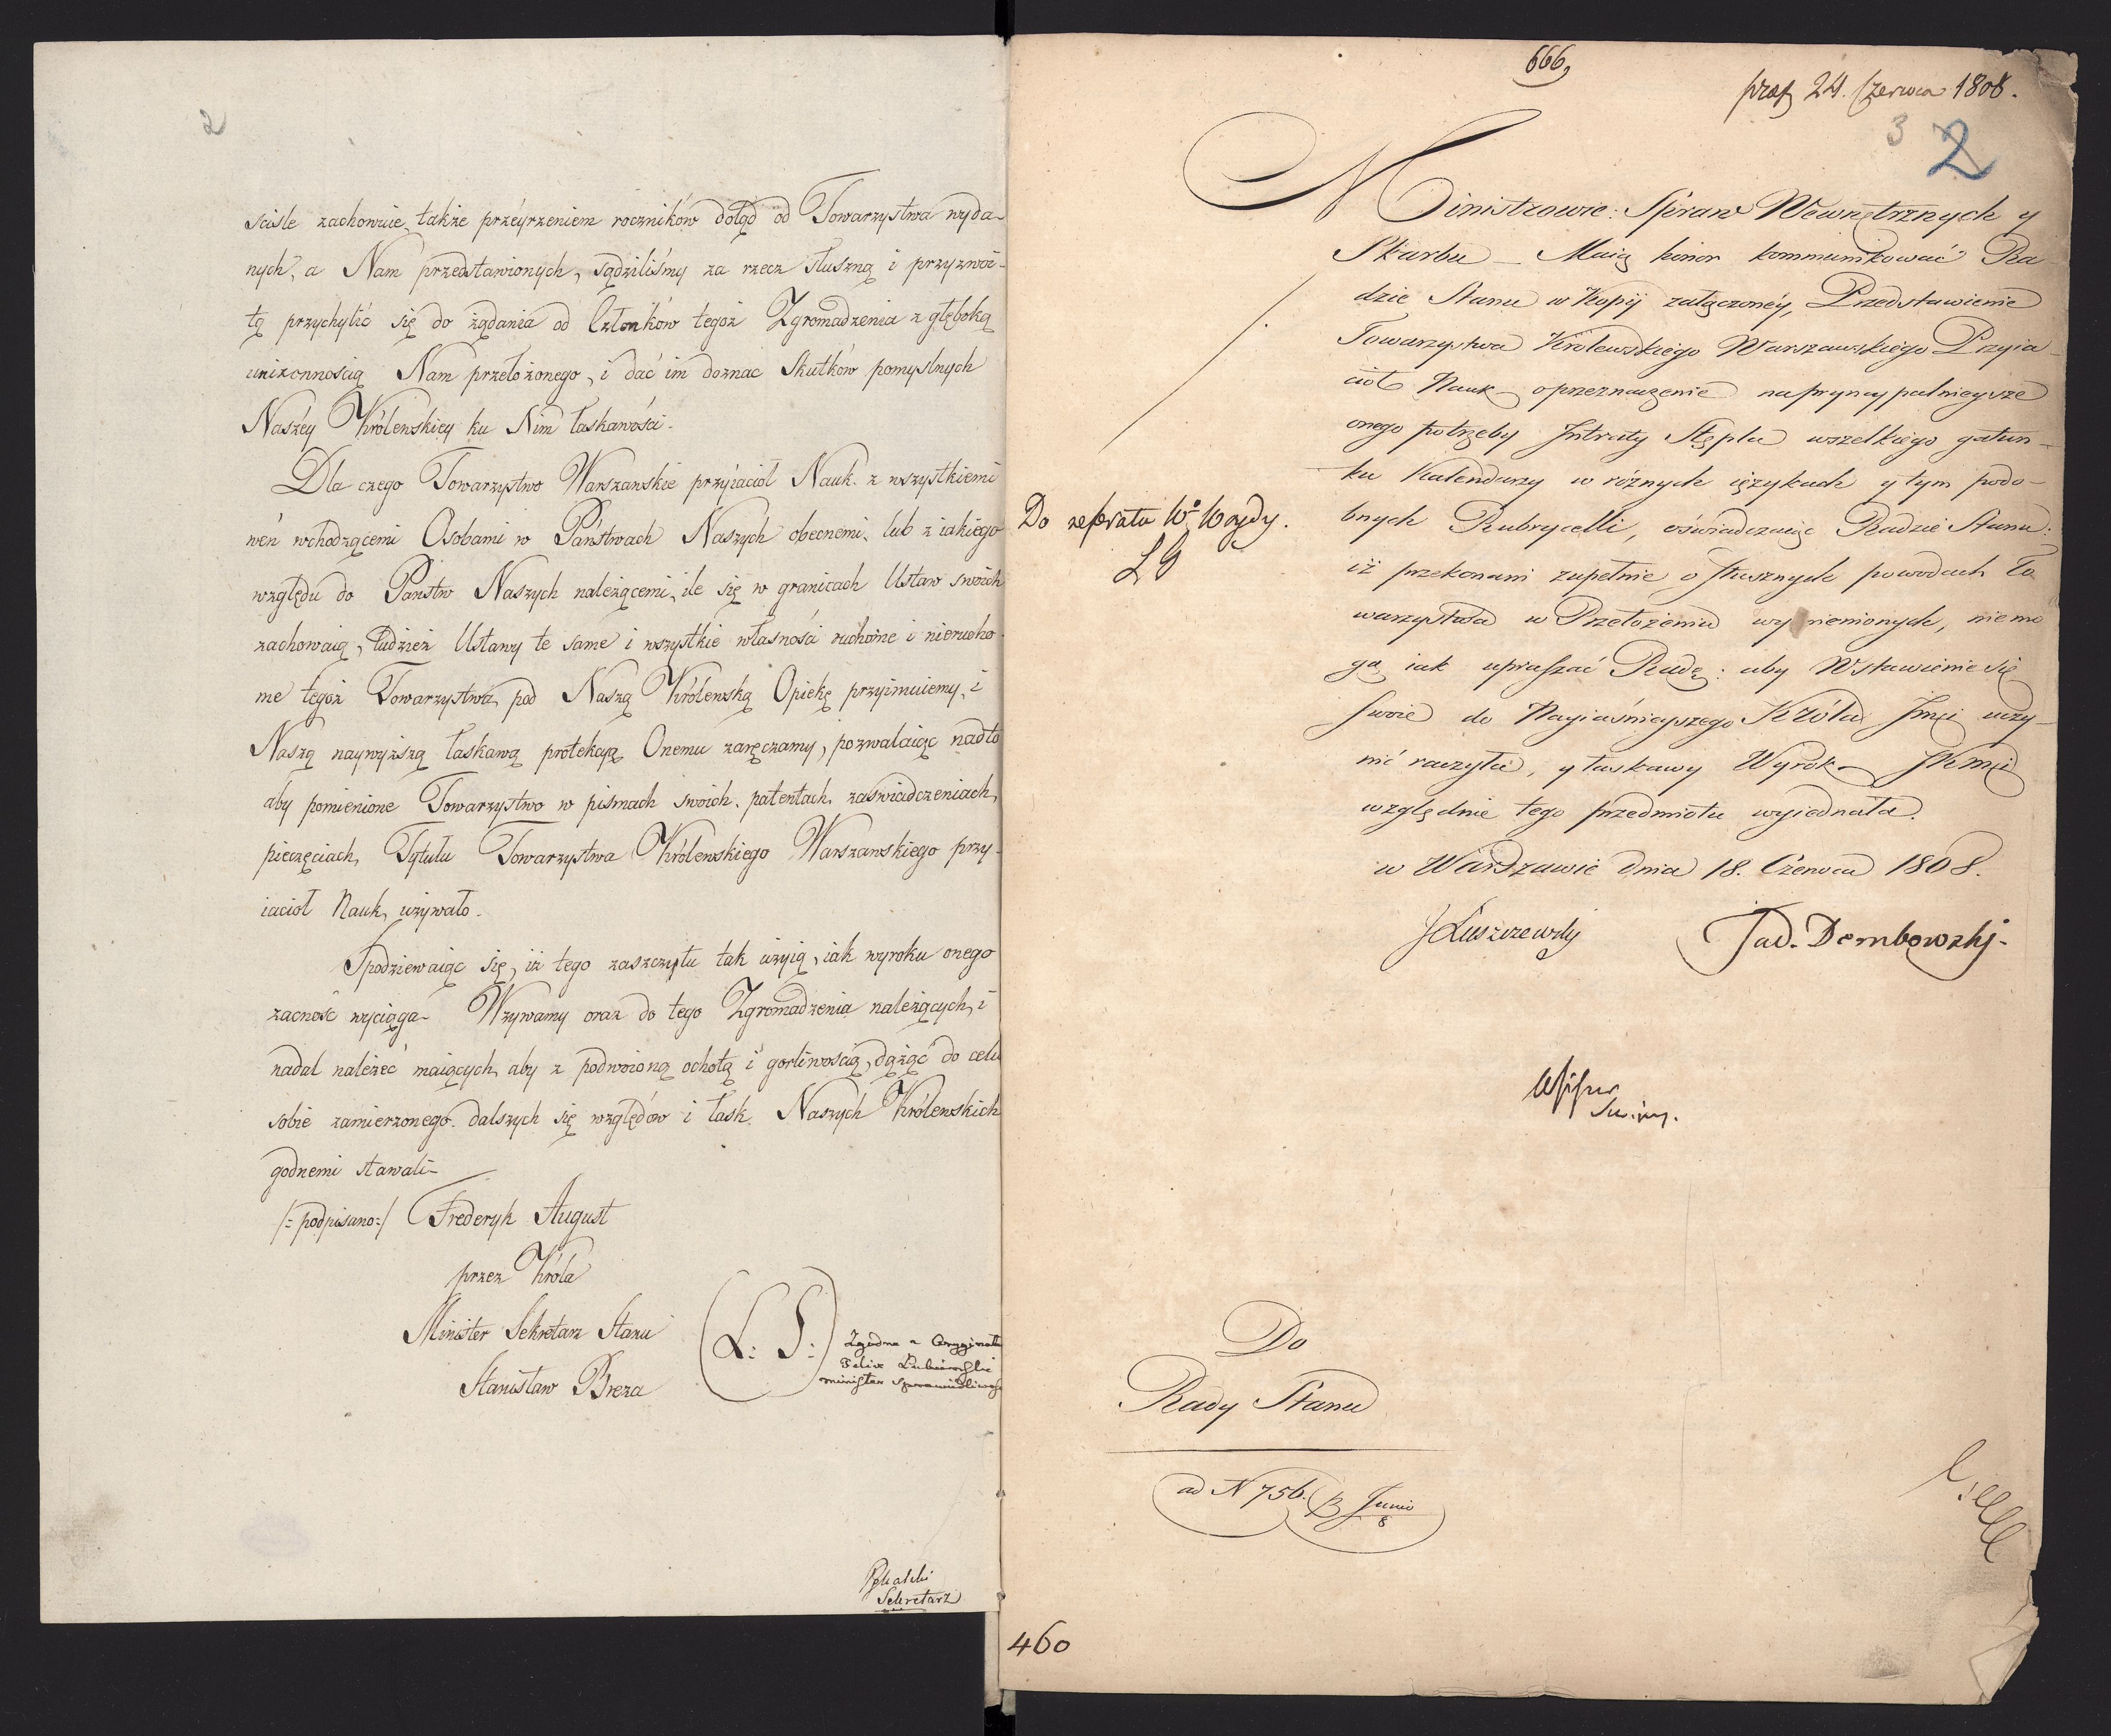 2
sciśle zachowuie, także przeyrzeniem roczników dotąd od Towarzystwa wyda-
nych, a Nam przedstawionych, sądziliśmy za rzecz słuszną i przyzwoi-
tą przychylić się do żądania od Członków tegoż Zgromadzenia z głęboką
uniżonnością Nam przełożonego, i dać im doznać Skutków pomyslnych
Naszéy Królewskiey ku Nim łaskawości.
Dla czego Towarzystwo Warszawskie przyiaciół Nauk z wszystkiemi
weń wchodzącemi Osobami w Państwach Naszych obecnemi, lub z iakiego
względu do Państw Naszych należącemi, ile się w granicach Ustaw swoich
zachowaią, tudzież Ustawy te same i wszystkie własności ruchome i nierucho-
me tegoż Towarzystwa, pod Naszą Królewską Opiekę przyimuiemy, i
Naszą naywyższą łaskawą protekcyą Onemu zaręczamy, pozwalaiąc nadto
aby pomienione Towarzystwo w pismach swoich, patentach, zaświadczeniach,
pieczęciach, Tytułu Towarzystwa Królewskiego Warszawskiego przy-
iaciół Nauk, używało.
Spodziewaiąc się, iż tego zaszczytu tak użyią, iak wyroku onego
zacność wyciąga. Wzywamy oraz do tego Zgromadzenia należących, i
nadal należeć maiących, aby z podwoioną ochotą i gorliwością, dążąć do celu
sobie zamierzonego, dalszych się względów i łask Naszych Królewskich
godnemi stawali.
/: podpisano :/ Frederyk August
przez Króla
Minister Sekretarz Stanu
Stanisław Breza
(L: S:)
Zgodno z Oryginałem
Felix Łubieński
minister Sprawiedliwości
Sekretarz
666,
præs 24. Czerwca 1808.
3 2
Ministrowie: Spraw Wewnętrznych y
Skarbu – Maią honor kommunikować Ra-
dzie Stanu w Kopij załączonéy, Przedstawienie
Towarzystwa Królewskiego Warszawskiego Przyia-
ciół Nauk o przeznaczenie na pryncypalnieysze
onego potrzeby Intraty Stępla wszelkiego gatun-
ku Kalendarzy w różnych ięzykach y tym podo-
bnych Rubrycelli, oświadczaiąc Radzie Stanu:
iż przekonani zupełnie o słusznych powodach To-
warzystwa w Przełożeniu wymienionych, nie mo-
gą iak upraszać Radę: aby Wstawienie się
swoie do Nayiaśnieyszego Króla Jmci uczy-
nić raczyła, y łaskawy Wyrok JKMci
względnie tego przedmiotu wyiednała.
w Warszawie dnia 18. Czerwca 1808.
JŁuszczewsky Tad. Dembowskj.
Do referatu Wo Woydy.
Do
Rady Stanu
ad N 756. B Junio
8
460